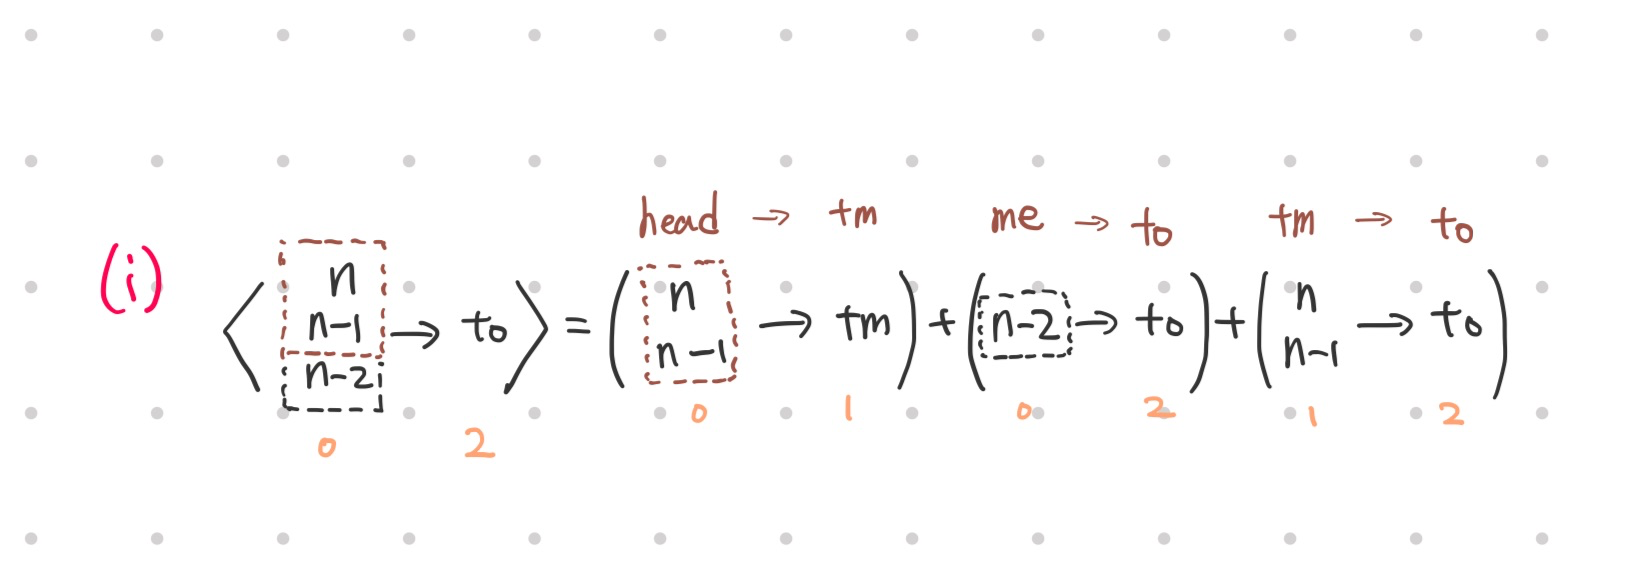 head → tm me → to tm → to
(i)
n n n
⟨ n-1 → to ⟩ = ( n-1 → tm ) + ( n-2 → to ) + ( n-1 → to )
n-2
0 2 0 1 0 2 1 2